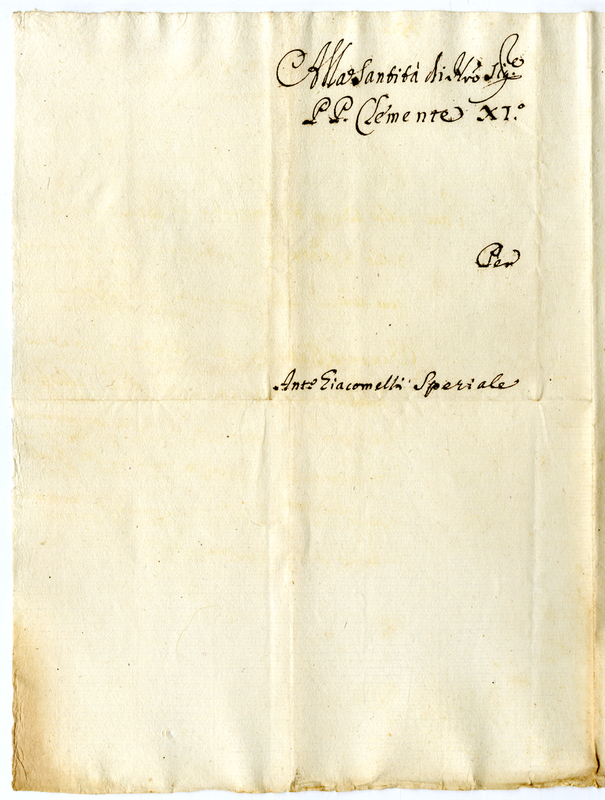 Alla Santità di Nrō Sig.re
PP. Clemente XI.o
Per
Ant.o Giacomelli Speziale